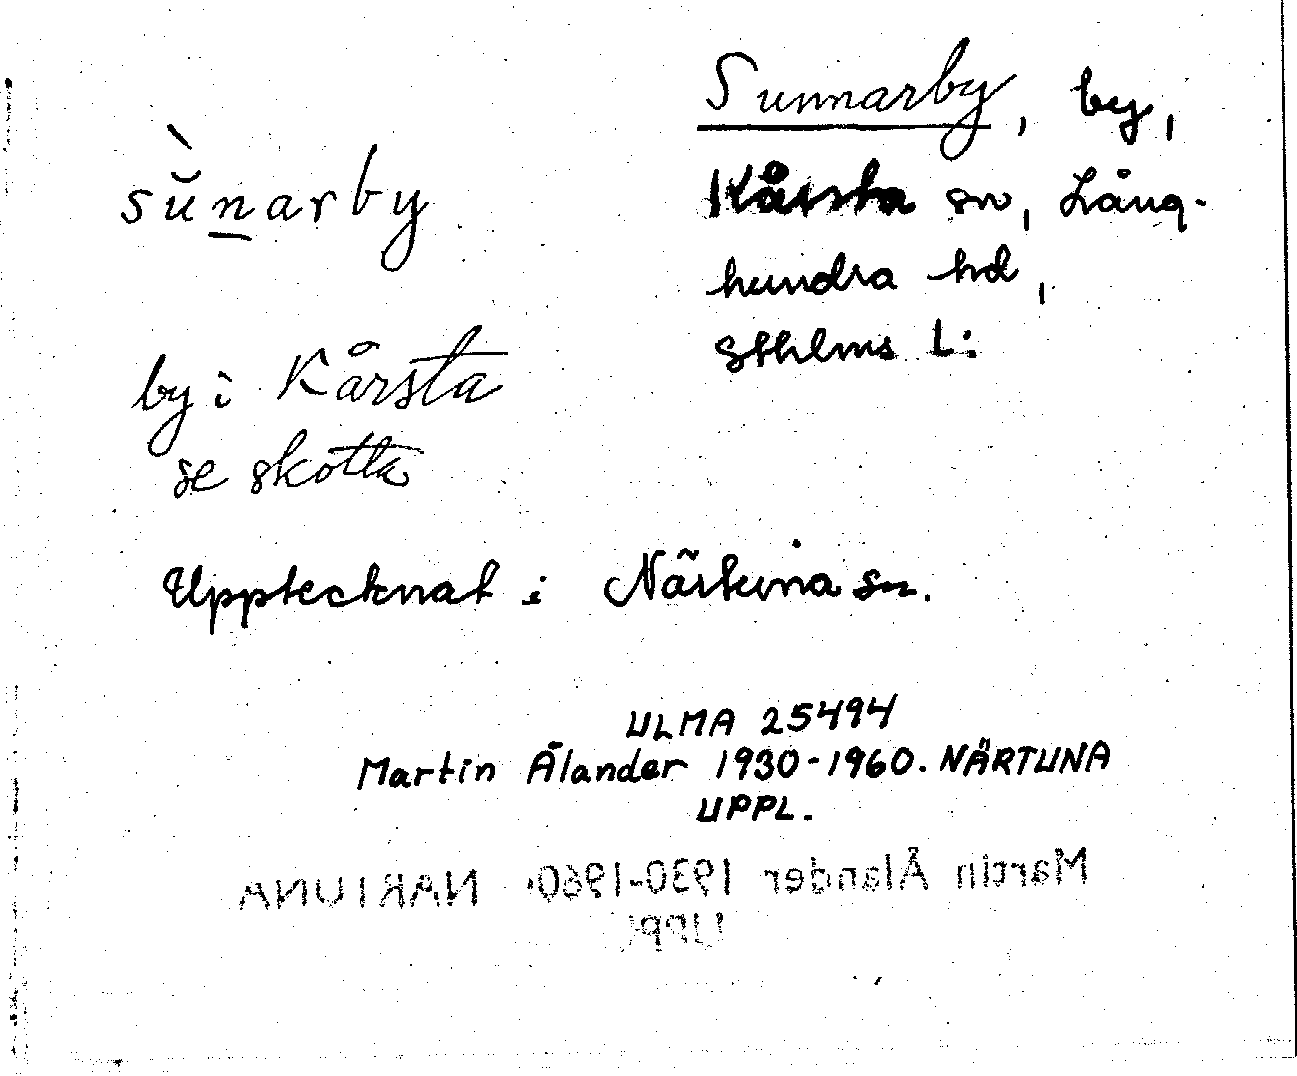 Sunnarby, by,
Kårsta sn, Lång-
hundra hd,
Sthlms L:
sùnarby
by i Kårsta
se skotta
Upptecknat i Närtuna sn.
ULMA 25494
Martin Ålander 1930-1960. NÄRTUNA
UPPL.
Martin Ålander 1930-1960. NÄRTUNA
UPPL.